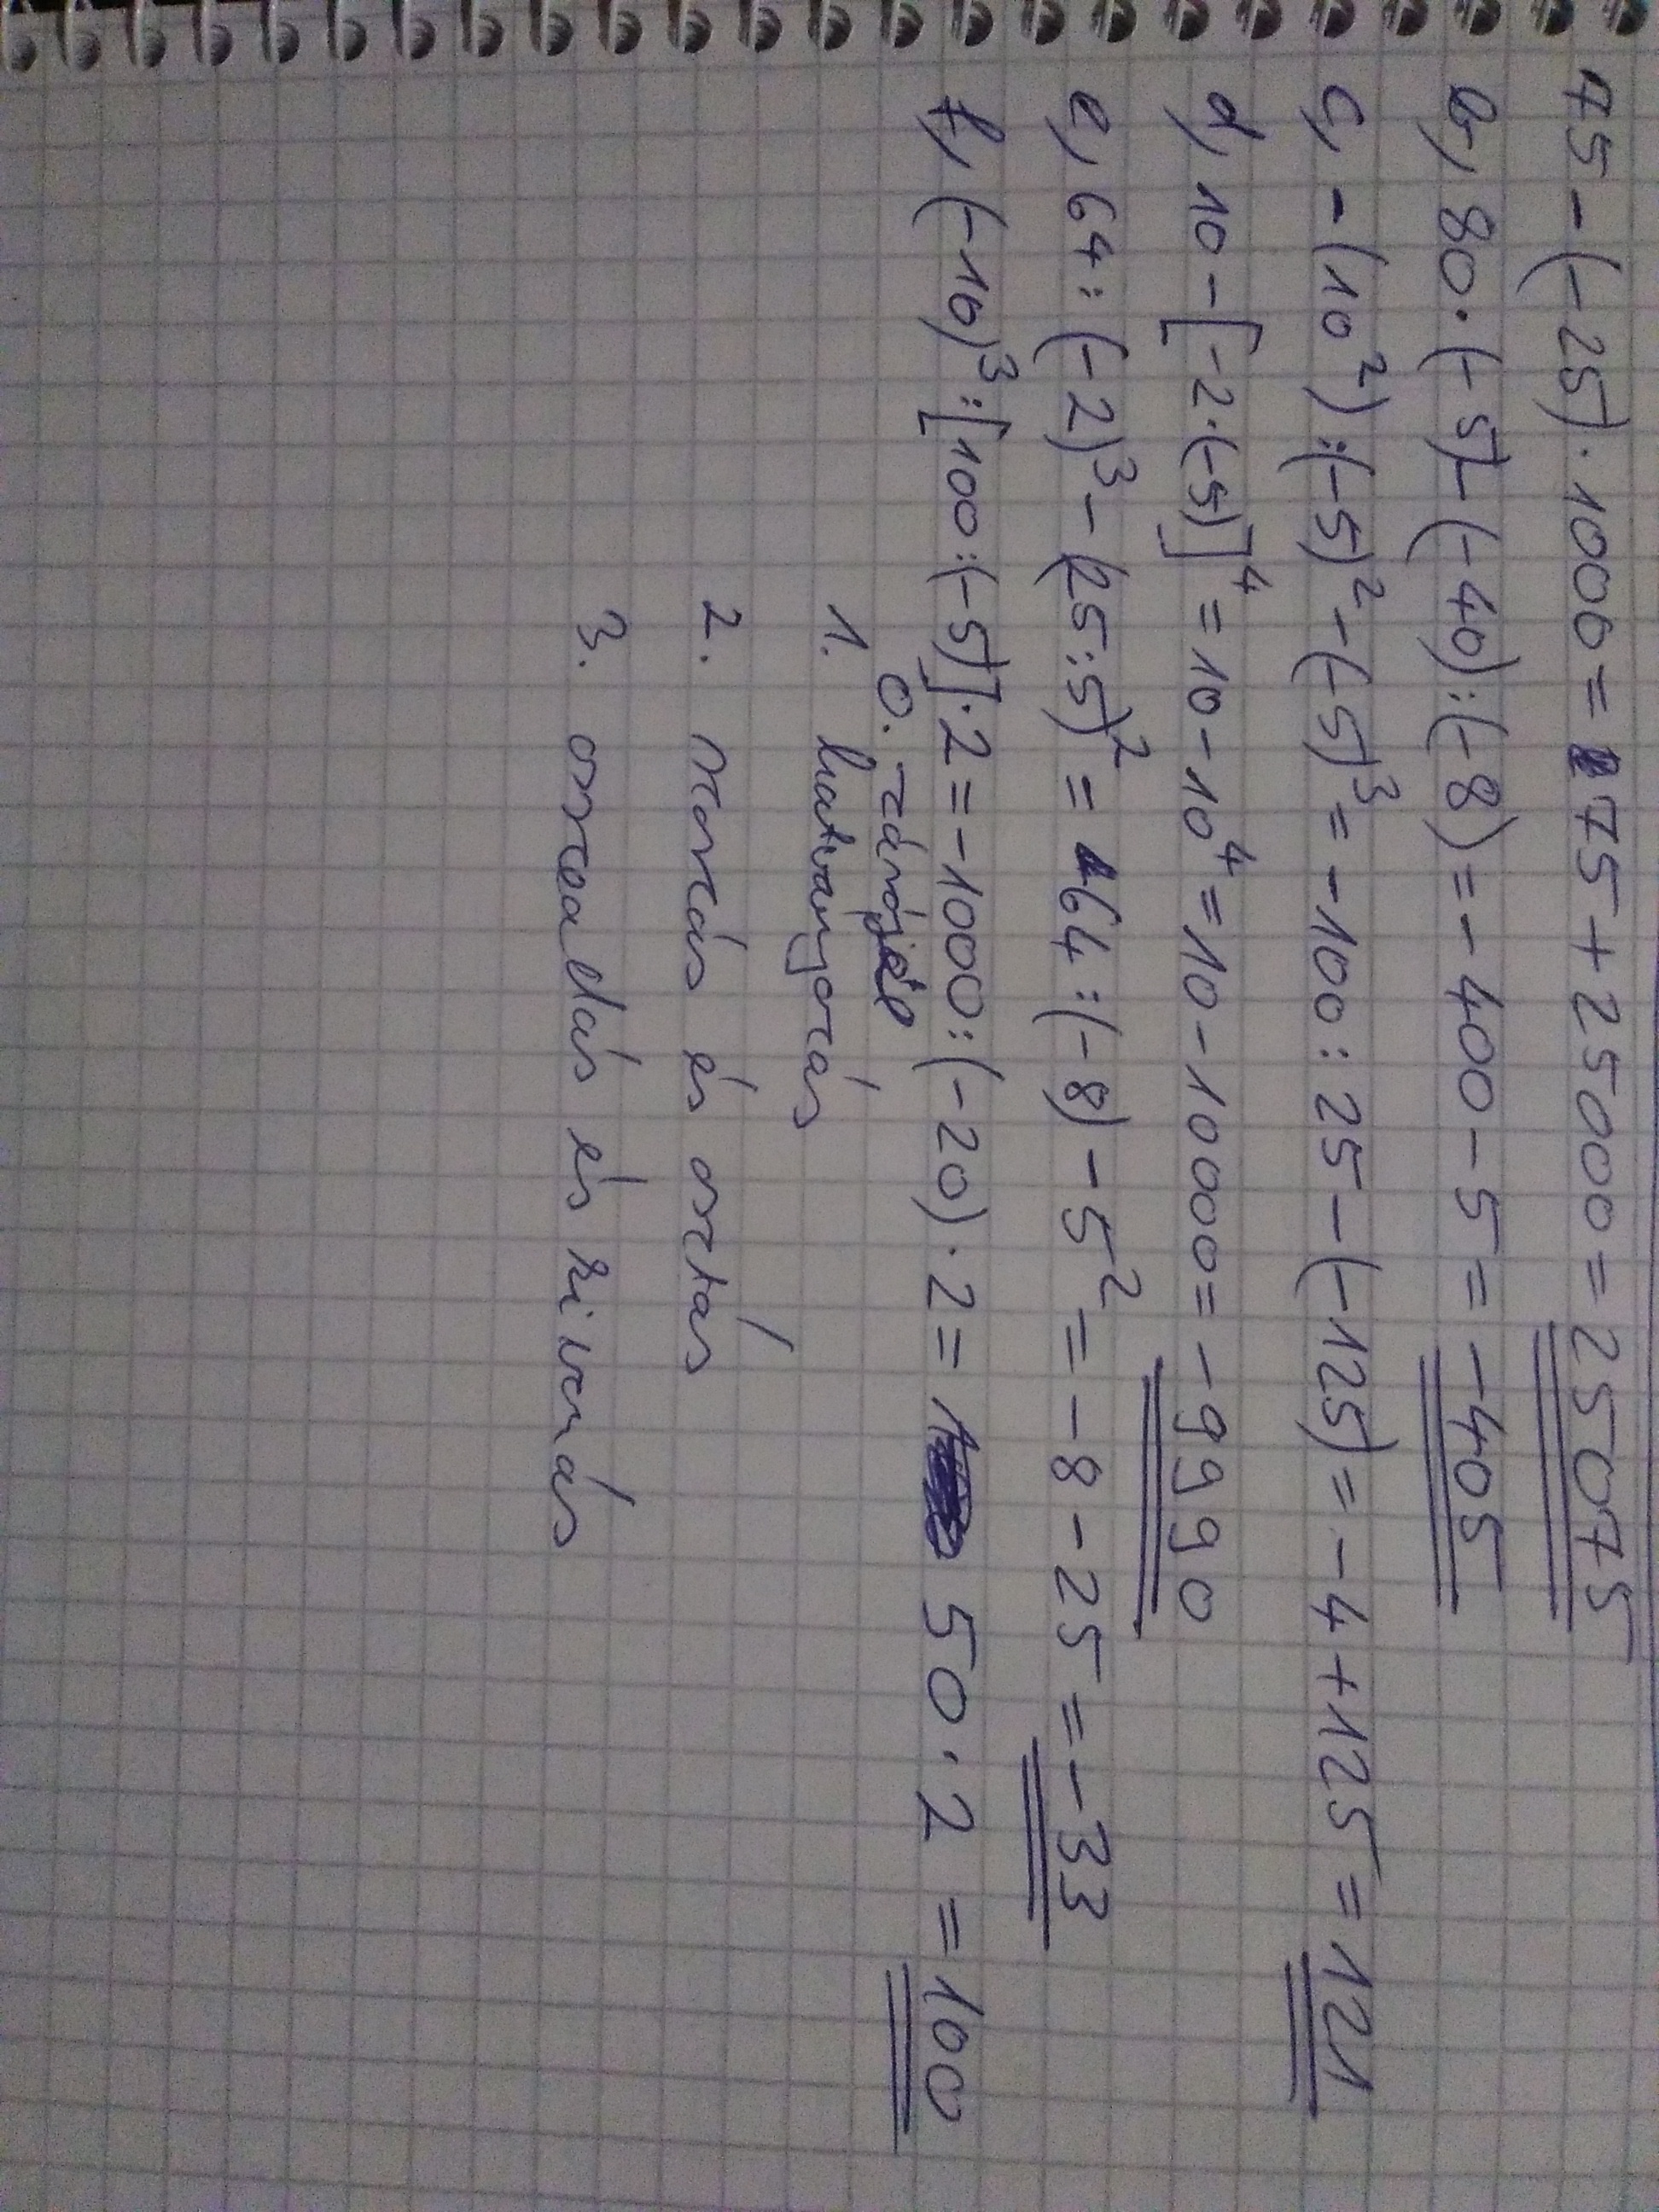 75-(-25)·1000=75+25000=25075
b, 80·(-5)-(-40):(-8)=-400-5=-405
c, -(10²):(-5)²-(-5)³=-100:25-(-125)=-4+125=121
d, 10-[-2·(-5)]⁴=10-10⁴=10-10000=-9990
e, 64:(-2)³-(25:5)²=64:(-8)-5²=-8-25=-33
f, (-10)³:[100:(-5)]·2=-1000:(-20)·2=50·2=100
0. zárójel
1. hatványozás
2. szorzás és osztás
3. összeadás és kivonás